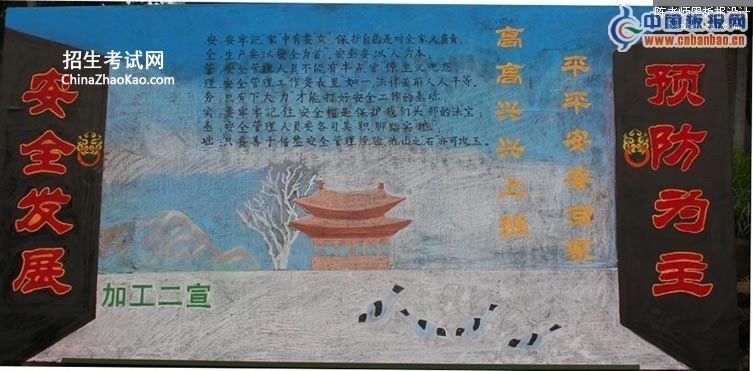 陈老师黑板报设计
中国板报网
www.cnbanbao.cn
招生考试网
ChinaZhaoKao.com
安全发展
预防为主
高高兴兴上班
平平安安回家
安:安要牢记,家中有妻女,保护自己是对全家人负责。
全:生产要以安全为首,安全要以人为本。
管:安全管理人员不能有半点官僚主义思想。
理:安全管理工作要表里如一,法律面前人人平等。
务:只有下大力才能打好安全工作的基础。
实:要牢牢记住安全帽是保护我们头部的法宝。
基:安全管理人员要各司其职,脚踏实地。
础:只要善于借鉴安全管理经验他山之石亦可攻玉。
加工二宣